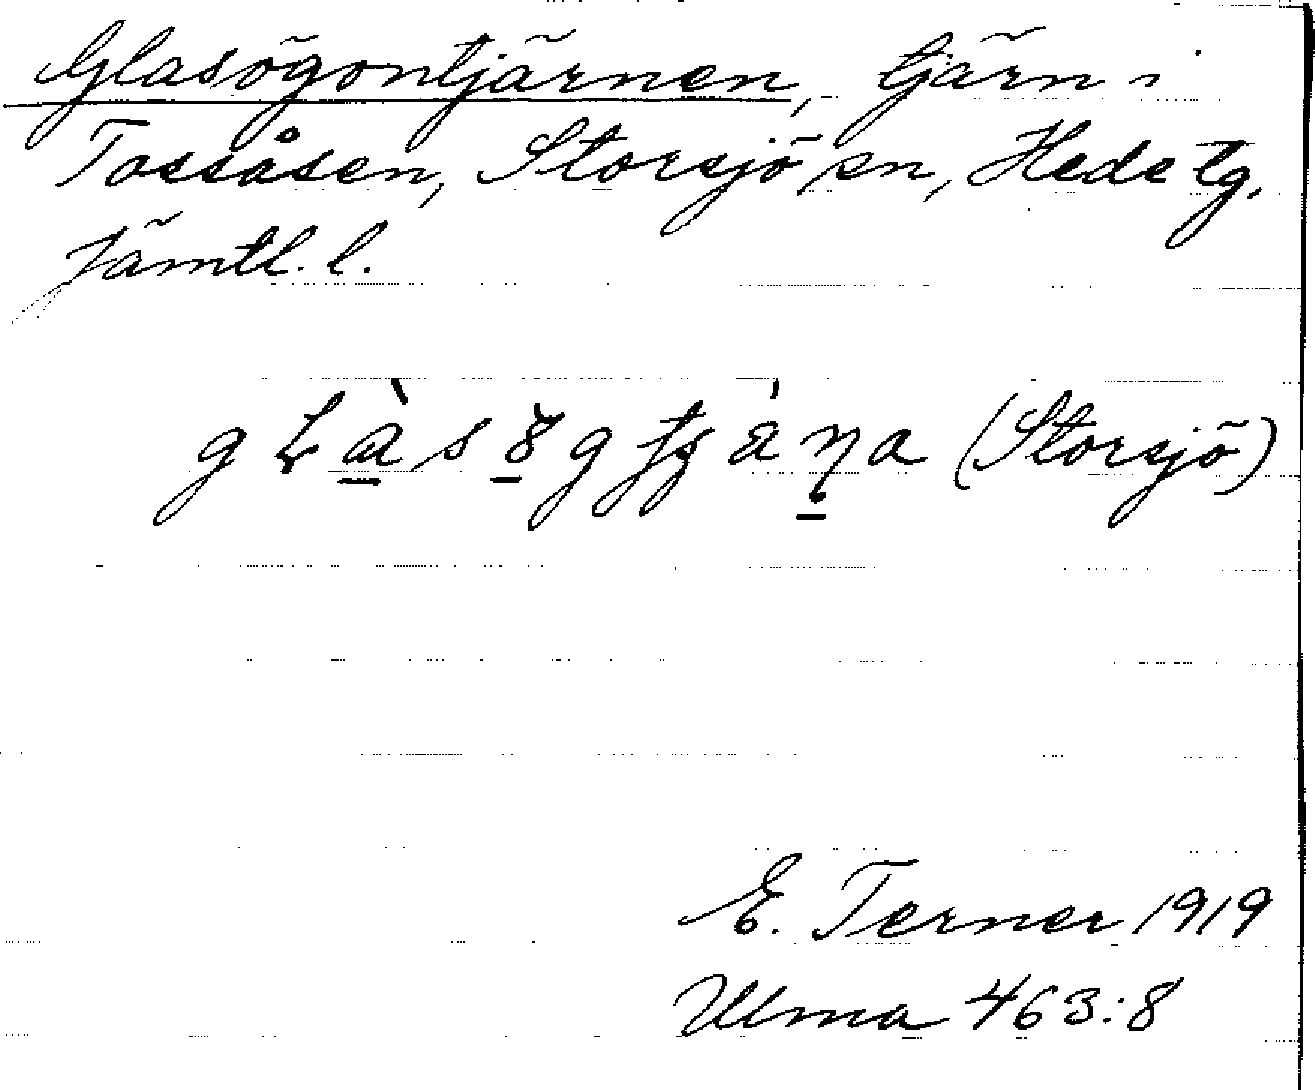 Glasögontjärnen, tjärn i
Tossåsen, Storsjö sn, Hede tg,
Jämtl. l.
(Storsjö)
E. Terner 1919
Ulma 463:8